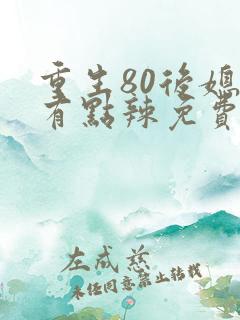 重生80後媳
有點辣免費
左成慈
未經同意禁止轉載